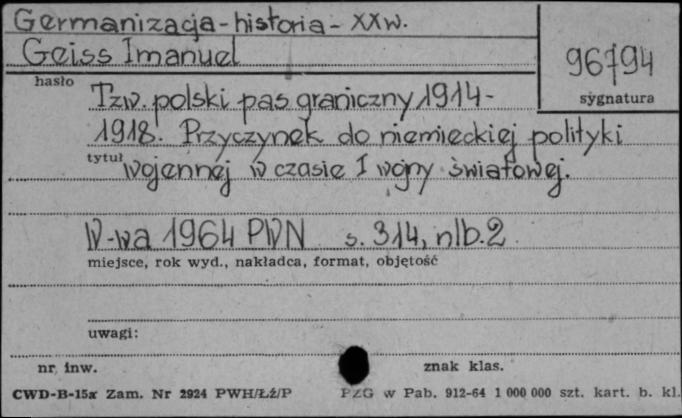 Germanizacja - historia - XX w.
Geiss Imanuel
96794
hasło
sygnatura
Tzw. polski pas graniczny 1914-
1918. Przyczynek do niemieckiej polityki
tytuł
wojennej w czasie I wojny światowej.
W-wa 1964 PWN s. 314, nlb. 2
miejsce, rok wyd., nakładca, format, objętość
uwagi:
nr. inw.
znak klas.
CWD-B-15a Zam. Nr 2924 PWH/Łź/P
PZG w Pab. 912-64 1 000 000 szt. kart. b. kl.